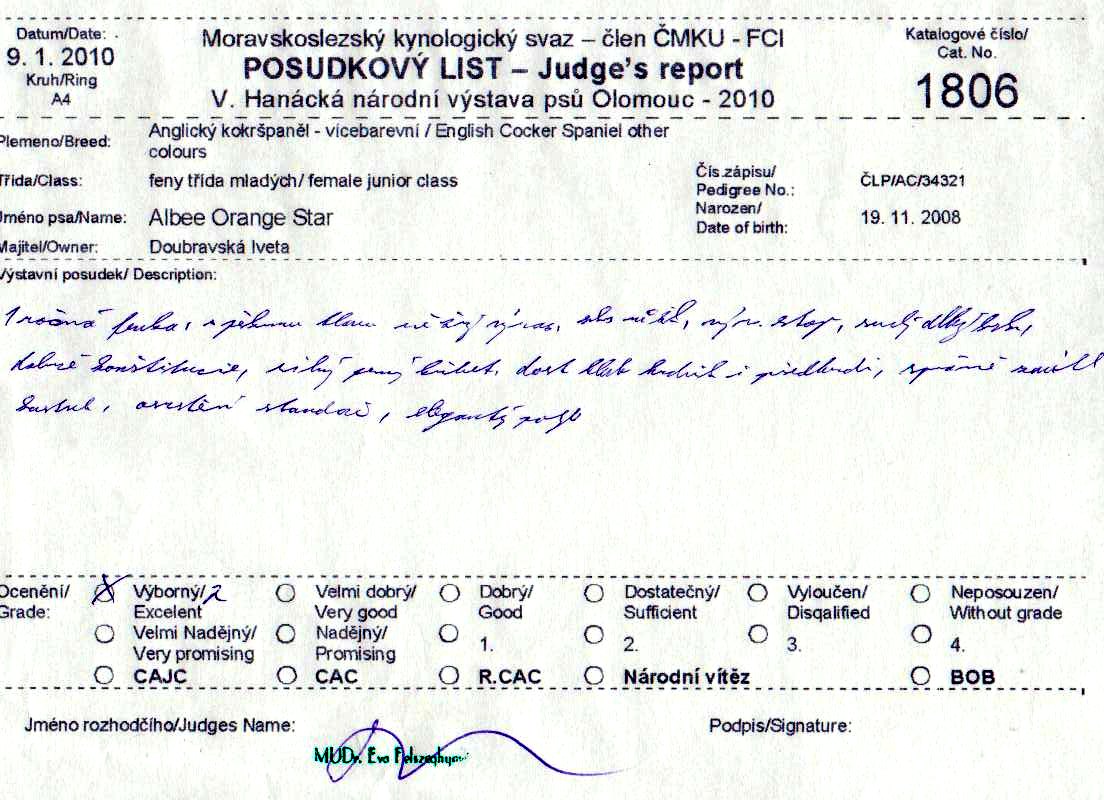 Datum/Date:
9. 1. 2010
Kruh/Ring
A4
Moravskoslezský kynologický svaz – člen ČMKU - FCI
POSUDKOVÝ LIST – Judge's report
V. Hanácká národní výstava psů Olomouc - 2010
Katalogové číslo/
Cat. No.
1806
Plemeno/Breed: Anglický kokršpaněl - vícebarevní / English Cocker Spaniel other
colours
Třída/Class: feny třída mladých/ female junior class
Čís.zápisu/
Pedigree No.: ČLP/AC/34321
Jméno psa/Name: Albee Orange Star
Narozen/
Date of birth: 19. 11. 2008
Majitel/Owner: Doubravská Iveta
Výstavní posudek/ Description:
1 roční fenka, výraz, stop, suchý
dobré konstituce, pevný hrudník i předhrudí, správně
osvalení standard, elegantý
Ocenění/
Grade:
Výborný/2
Excelent
Velmi dobrý/
Very good
Dobrý/
Good
Dostatečný/
Sufficient
Vyloučen/
Disqalified
Neposouzen/
Without grade
Velmi Nadějný/
Very promising
Nadějný/
Promising
1.
2.
3.
4.
CAJC
CAC
R.CAC
Národní vítěz
BOB
Jméno rozhodčího/Judges Name:
Podpis/Signature:
MUDr. Eva